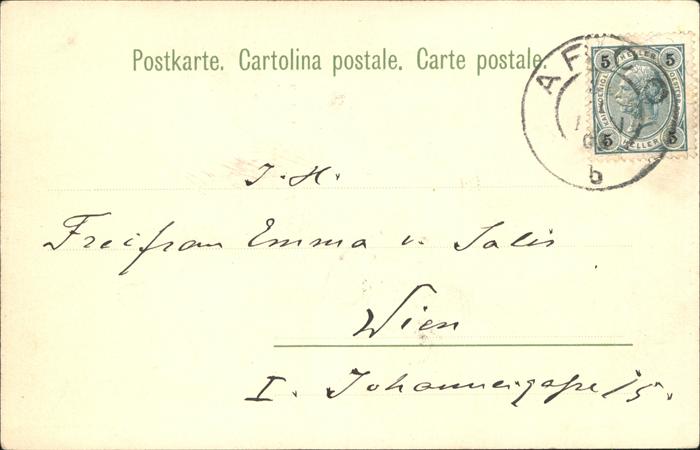 Postkarte. Cartolina postale. Carte postale.
AFLO
b
5 HELLER 5
5 HELLER 5
I. H.
Freifrau Emma v. Salis
Wien
I. Johannesgasse 15.